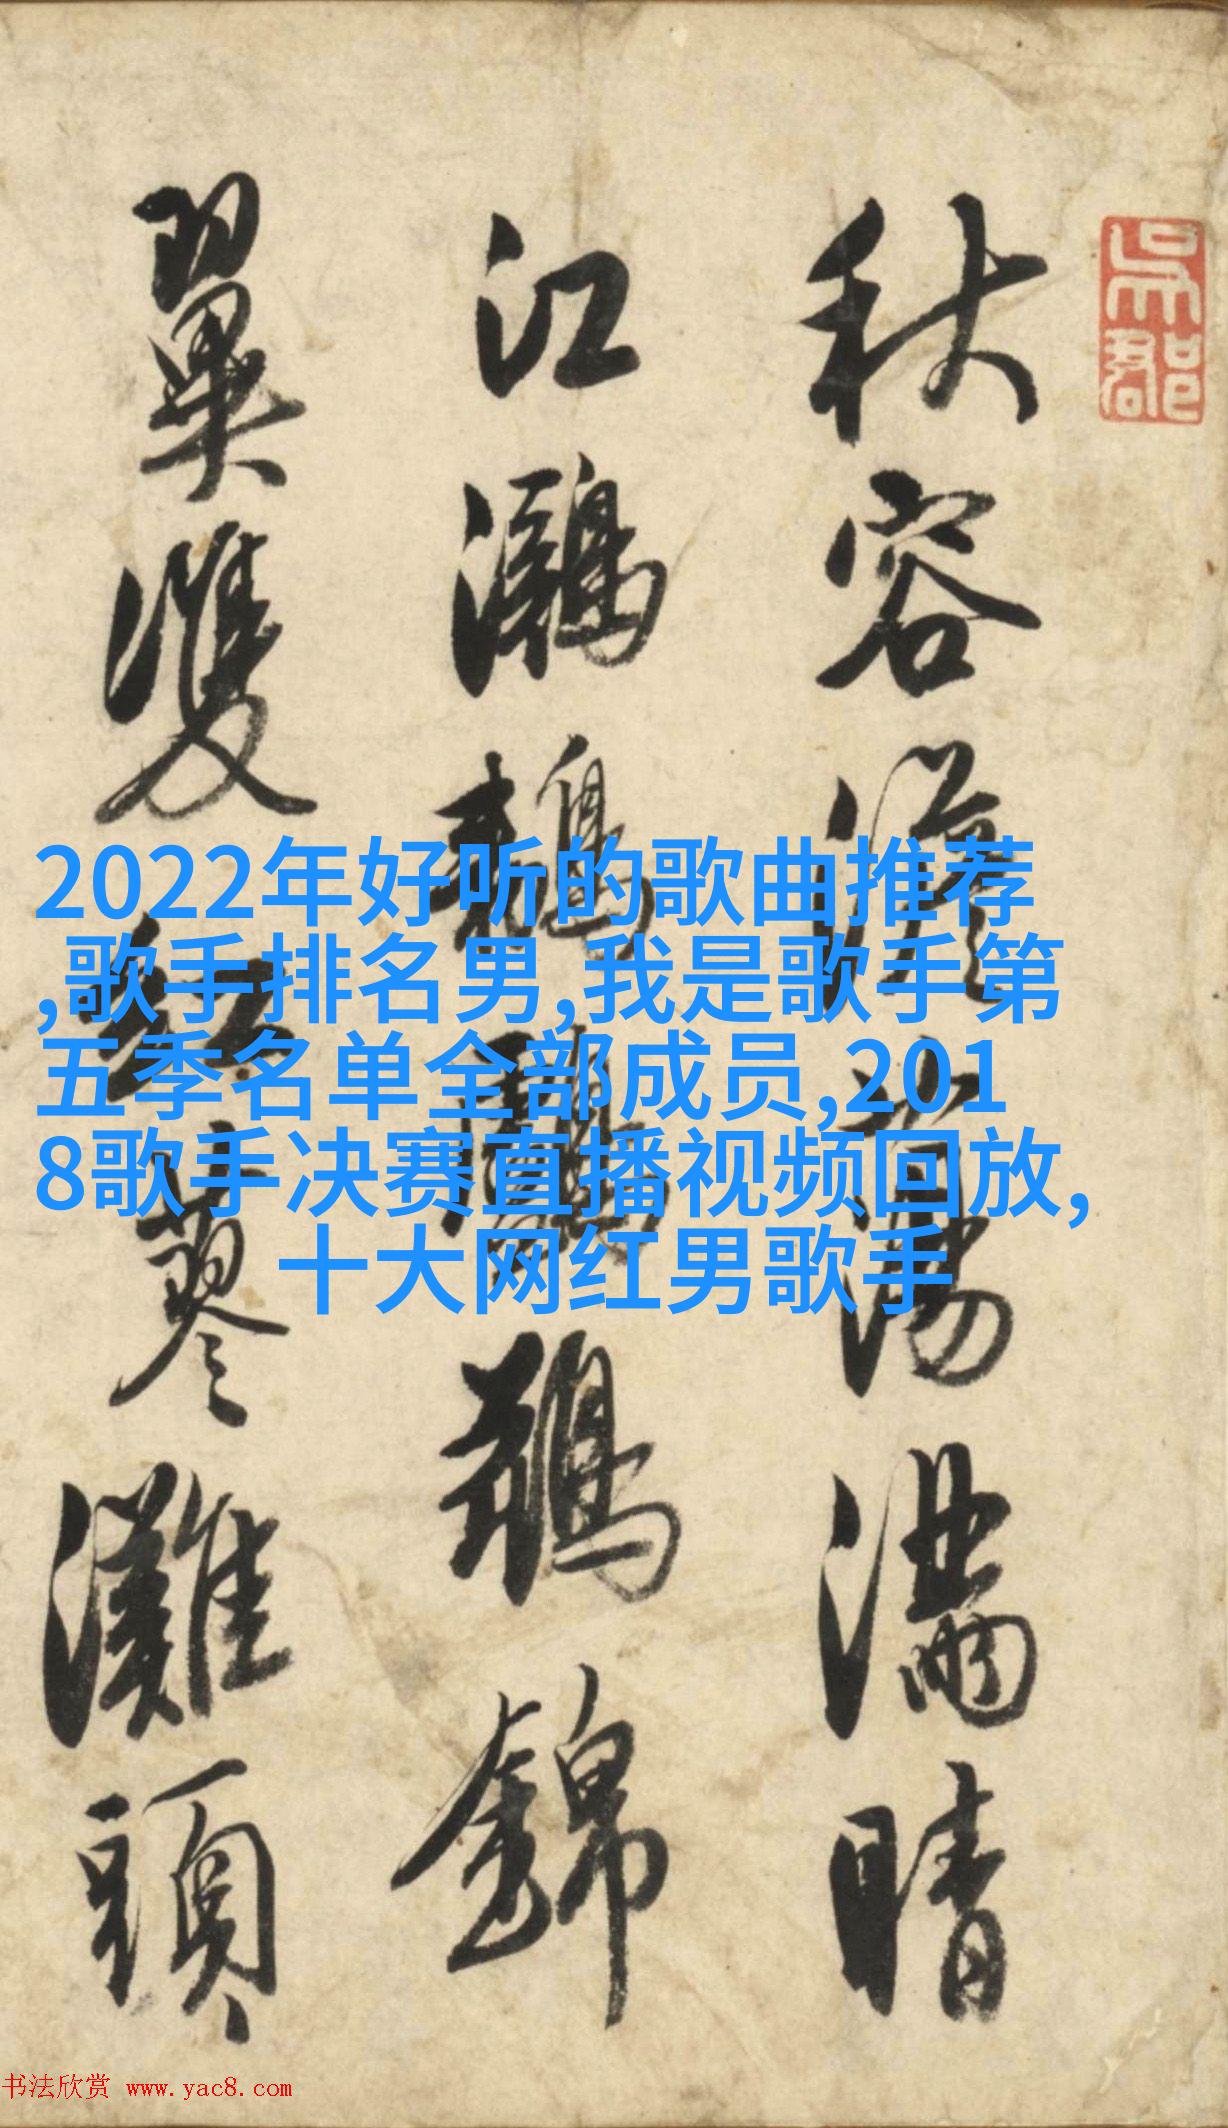 吳郡
秋容澹蕩滿晴
江鸂鶒錦
翼雙紅蓼灘頭
2022年好听的歌曲推荐
,歌手排名男,我是歌手第
五季名单全部成员,201
8歌手决赛直播视频回放,
十大网红男歌手
书法欣赏 www.yac8.com